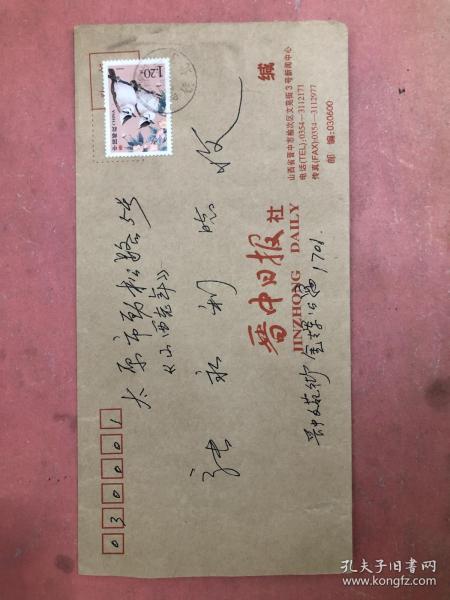 030001
太原市勁松路5号
《山西老年》
张永利 收
晋中日报社
JINZHONG DAILY
缄
山西省晋中市榆次区文苑街3号新闻中心
电话(TEL):0354—3112171
传真(FAX):0354—3112977
邮 编:030600
1701.
1.20元
中国邮政 CHINA
孔夫子旧书网
www.kongfz.com